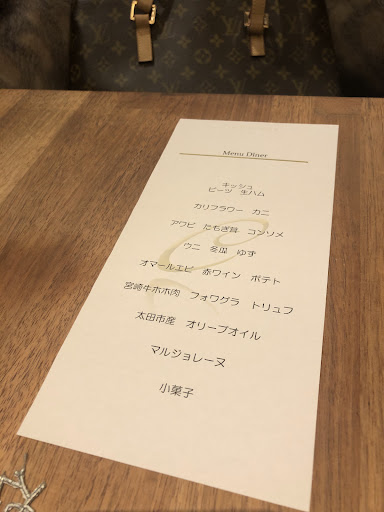 Menu Dîner
キッシュ
ビーツ 生ハム
カリフラワー カニ
アワビ たもぎ茸 コンソメ
ウニ 冬瓜 ゆず
オマールエビ 赤ワイン ポテト
宮崎牛ホホ肉 フォワグラ トリュフ
太田市産 オリーブオイル
マルジョレーヌ
小菓子